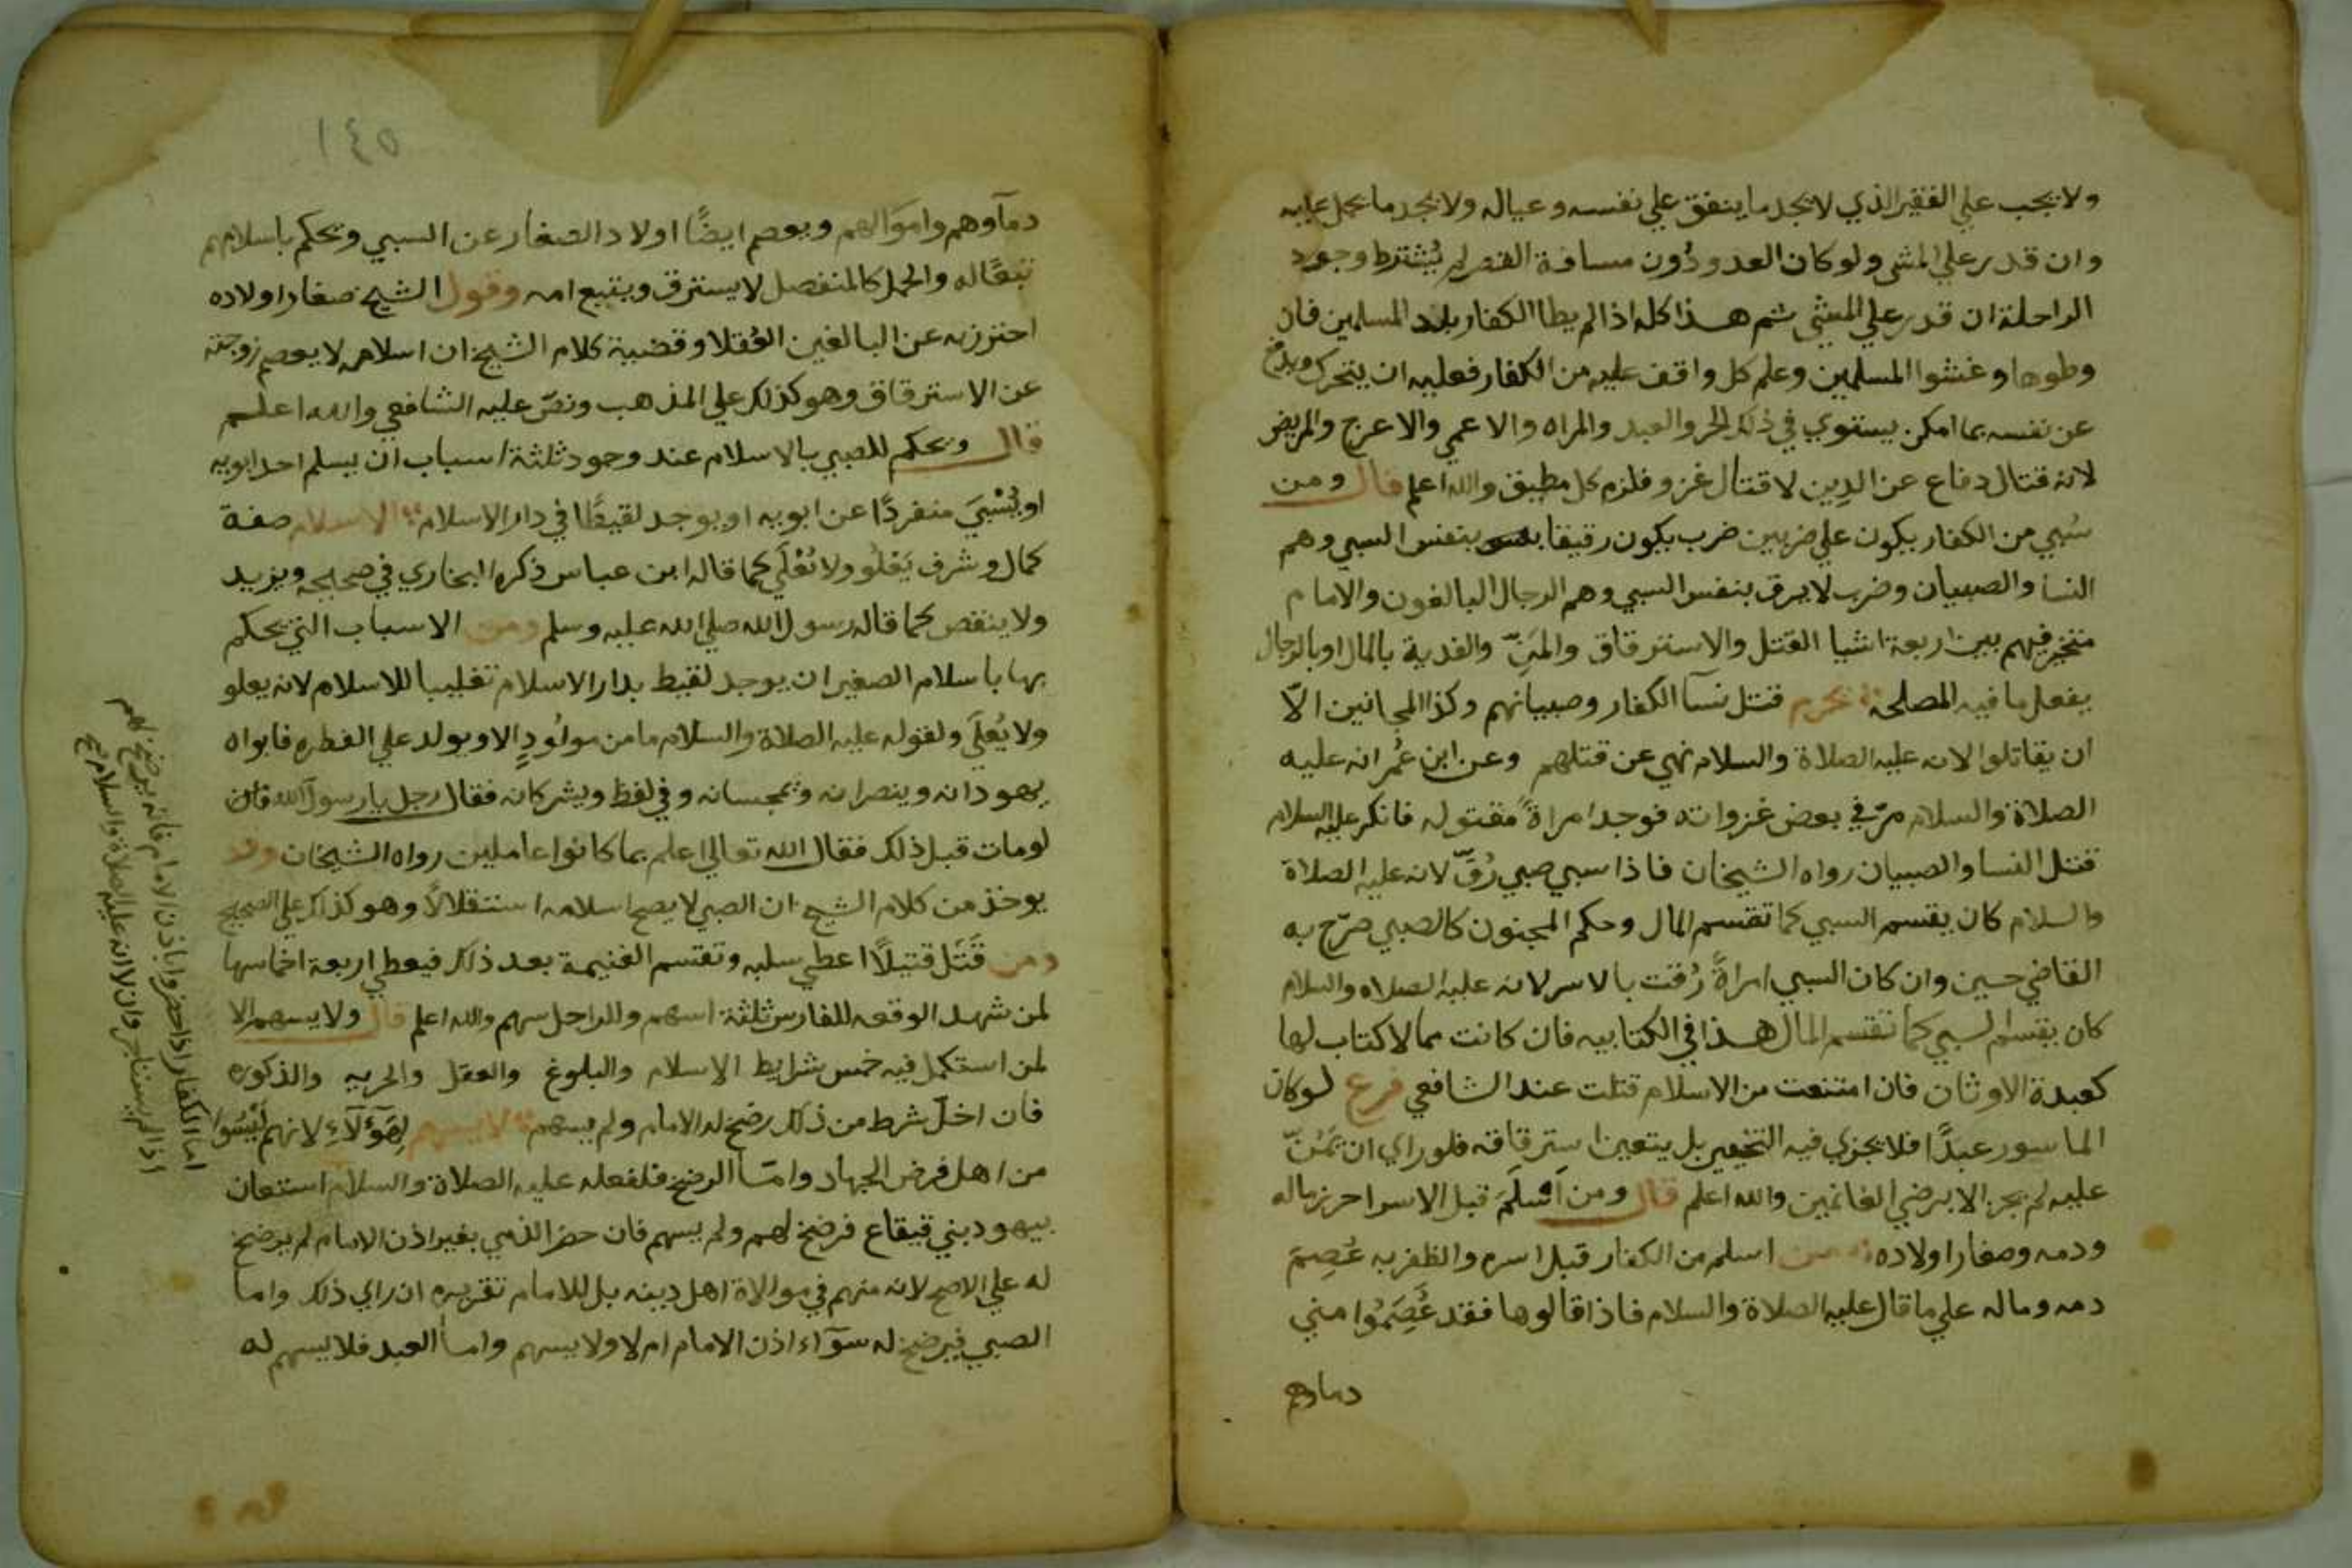 ولا يجب علي الفقير الذي لا يجد ما ينفق علي نفسه وعياله ولا يجد ما يحمل عليه
وان قدر علي المشي ولو كان العدو دُون مسافة القصر لم يُشترط وجود
الراحلة ان قدر علي المشي ثم هذا كله اذا لم يطا الكفار بلاد المسلمين فان
وطوها وغشوا المسلمين وعلم كل واقف عليه من الكفار فعليه ان يتحرك ويدفع
عن نفسه بما امكن يستوي في ذلك الحر والعبد والمراه والاعمي والاعرج والمريض
لانه قتال دفاع عن الدين لا قتال غزو فلزم كل مطيق والله اعلم قال ومن
سُبي من الكفار يكون علي ضربين ضرب يكون رقيقا بنفس السبي وهم
النسا والصبيان وضرب لا يرق بنفس السبي وهم الرجال البالغون والامام
مخير فيهم بين اربعة اشيا القتل والاسترقاق والمَنّ والفدية بالمال او بالرجال
يفعل ما فيه المصلحة يحرم قتل نسآ الكفار وصبيانهم وكذا المجانين الّا
ان يقاتلوا لانه عليه الصلاة والسلام نهي عن قتلهم وعن ابن عُمر انه عليه
الصلاة والسلام مرّ في بعض غزواته فوجد امراةً مقتوله فانكر عليه السلام
قتل النسا والصبيان رواه الشيخان فاذا سبي صبي رُقّ لانه عليه الصلاة
والسلام كان يقسم السبي كما تقسم المال وحكم المجنون كالصبي صرّح به
القاضي حسين وان كان السبي امراةً رُقت بالاسر لانه عليه الصلاه والسلام
كان يقسم السبي كما تقسم المال هذا في الكتابيه فان كانت مما لا كتاب لها
كعبدة الاوثان فان امتنعت من الاسلام قتلت عند الشافعي فرع لو كان
الماسور عبدًا فلا يجزي فيه التخيير بل يتعين استرقاقه فلو راي ان يَمُنّ
عليه لم يجز الا برضي الغانمين والله اعلم قال ومن اَسْلَمَ قبل الاسر احرز ماله
ودمه وصغار اولاده من اسلم من الكفار قبل اسره والظفر به عُصِمَ
دمه وماله علي ما قال عليه الصلاة والسلام فاذا قالوها فقد عُصِمُوا مني
دماوهم
١٤٥
دمآوهم واموالهم ويعصم ايضًا اولاد الصغار عن السبي ويحكم باسلامهم
تبعًا له والحمل كالمنفصل لا يسترق ويتبع امه وقول الشيخ صغار اولاده
احترز به عن البالغين العُقلا وقضية كلام الشيخ ان اسلامه لا يعصم زوجته
عن الاسترقاق وهو كذلك علي المذهب ونصّ عليه الشافعي والله اعلم
قال ويحكم للصبي بالاسلام عند وجود ثلثة اسباب ان يسلم احد ابويه
او يُسْبيَ منفردًا عن ابويه او يوجد لقيطًا في دار الاسلام الاسلام صفة
كمال وشرف يَعْلُو ولا يُعْلَي كما قاله ابن عباس ذكره البخاري في صحيحه ويزيد
ولا ينقص كما قاله رسول الله صلي الله عليه وسلم ومن الاسباب التي يحكم
بها باسلام الصغير ان يوجد لقيط بدار الاسلام تغليبا للاسلام لانه يعلو
ولا يُعلَي ولقوله عليه الصلاة والسلام ما من مولُودٍ الا ويولد علي الفطره فابواه
يهودانه وينصرانه ويمجسانه وفي لفظ ويشركانه فقال رجل يا رسول الله فان
لو مات قبل ذلك فقال الله تعالي اعلم بما كانوا عاملين رواه الشيخان وقد
يوخذ من كلام الشيخ ان الصبي لا يصح اسلامه استقلالاً وهو كذلك علي الصحيح
ومن قَتَل قتيلًا اعطي سلبه وتقسم الغنيمة بعد ذلك فيعطي اربعة اخماسها
لمن شهد الوقعه للفارس ثلثة اسهم وللراجل سهم والله اعلم قال ولا يسهم الا
لمن استكمل فيه خمس شرايط الاسلام والبلوغ والعقل والحريه والذكوره
فان اخلّ شرط من ذلك رضخ له الامام ولم يسهم لا يسهم لهَوٓلآءِ لانهم لَيْسُوا
من اهل فرض الجهاد وامّا الرضخ فلفعله عليه الصلاة والسلام استعان
بيهود بني قيقاع فرضخ لهم ولم يسهم فان حضر الذمي بغير اذن الامام لم يرضخ
له علي الاصح لانه متهم في موالاة اهل دينه بل للامام تعزيره ان راي ذلك واما
الصبي فيرضخ له سوآء اذن الامام ام لا ولا يسهم واما العبد فلا يسهم له
اما الكفار اذا حضروا باذن الامام فانه يرضخ لهم
اذا لم يستاجر وان لا انه عليه الصلاة والسلام